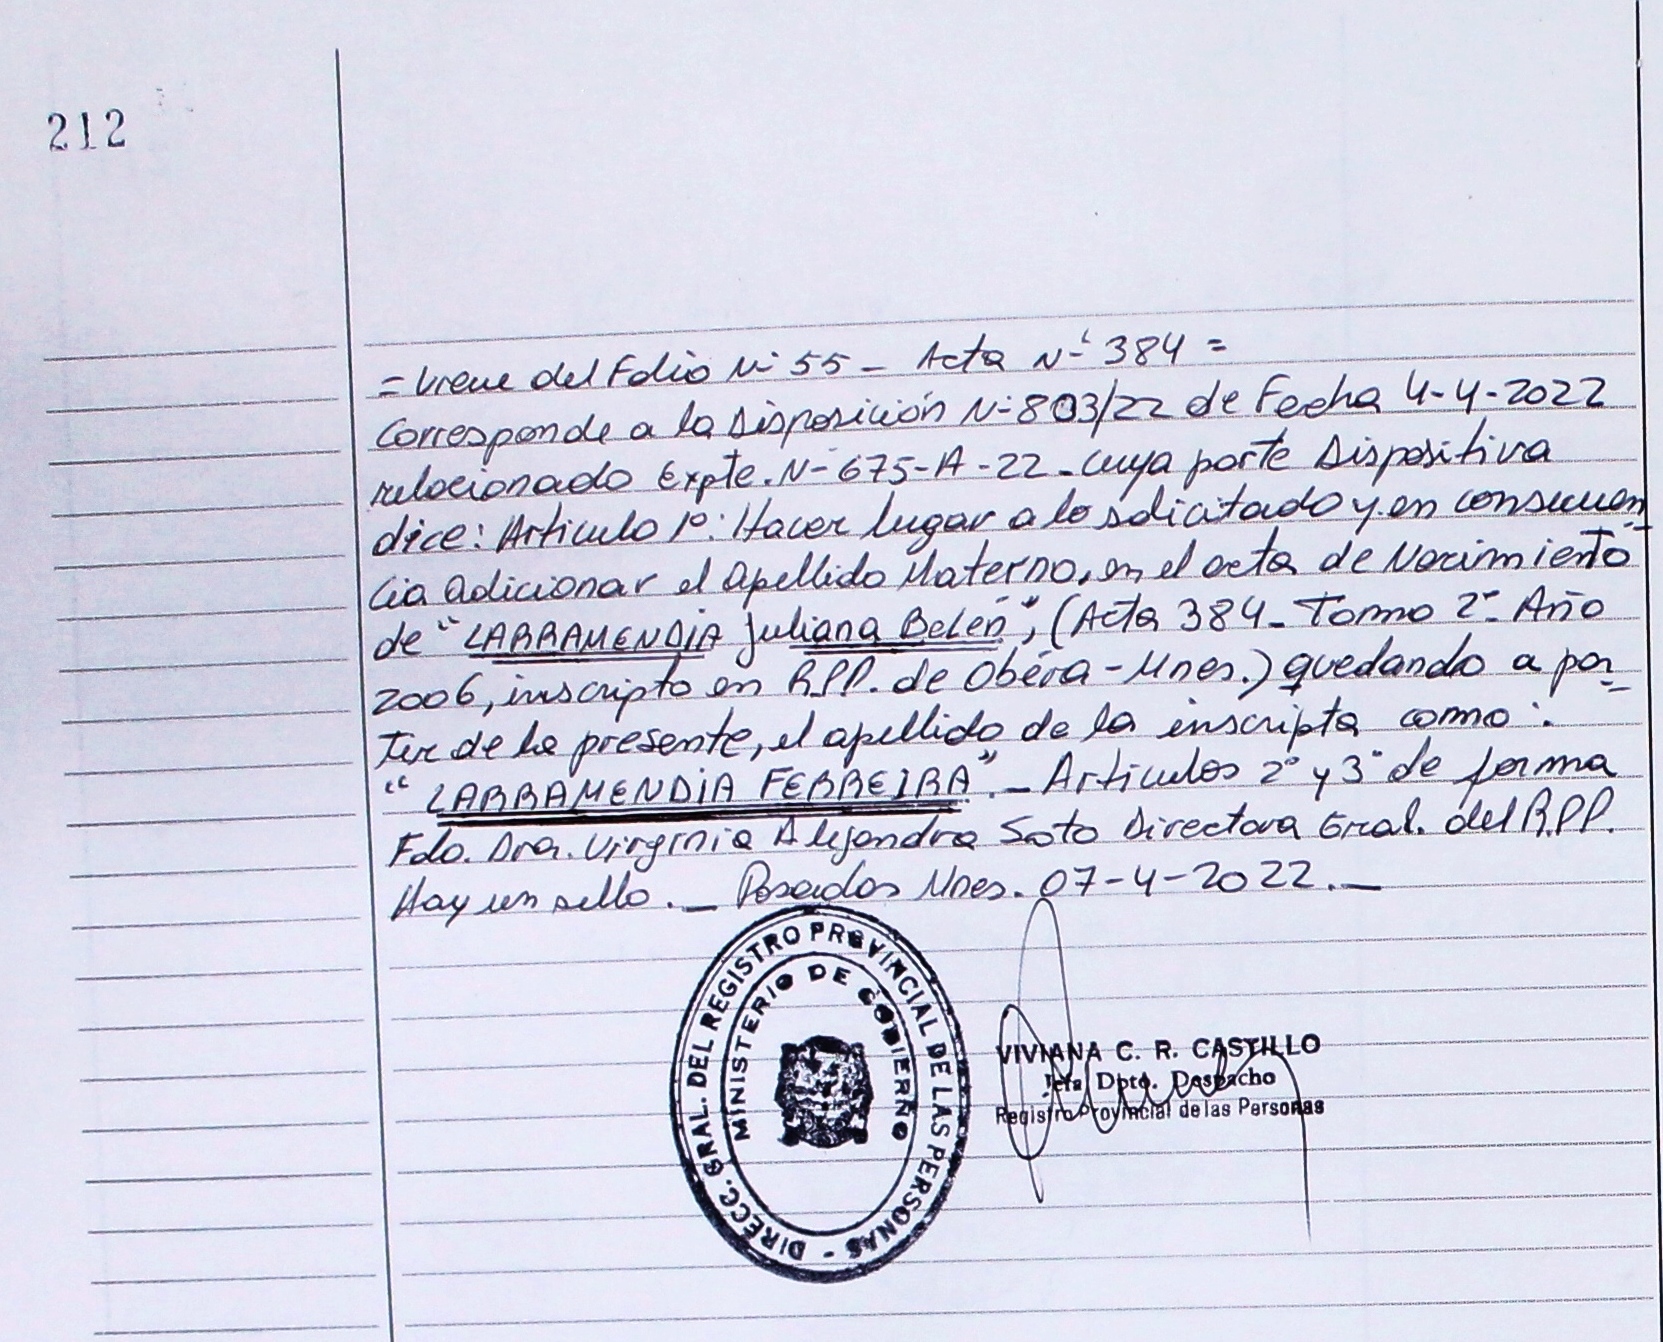 212
= Viene del Folio Nº 55 _ Acta Nº 384 =
Corresponde a la Disposición Nº 803/22 de Fecha 4-4-2022
relacionado Expte. Nº 675-A-22 _ cuya parte Dispositiva
dice: Artículo 1º: Hacer lugar a lo solicitado y en consecuen
cia adicionar el apellido Materno, en el acta de Nacimiento
de "LARRAMENDIA Juliana Belén", (Acta 384 _ Tomo 2º _ Año
2006, inscripto en R.P.P. de Oberá - Mnes.) quedando a par
tir de la presente, el apellido de la inscripta como:
"LARRAMENDIA FERREIRA"._ Artículos 2º y 3º de forma
Fdo. Dra. Virginia Alejandra Soto Directora Gral. del R.P.P.
Hay un sello._ Posadas Mnes. 07-4-2022._
DIRECC. GRAL. DEL REGISTRO PROVINCIAL DE LAS PERSONAS -
MINISTERIO DE GOBIERNO
VIVIANA C. R. CASTILLO
Jefa Dpto. Despacho
Registro Provincial de las Personas